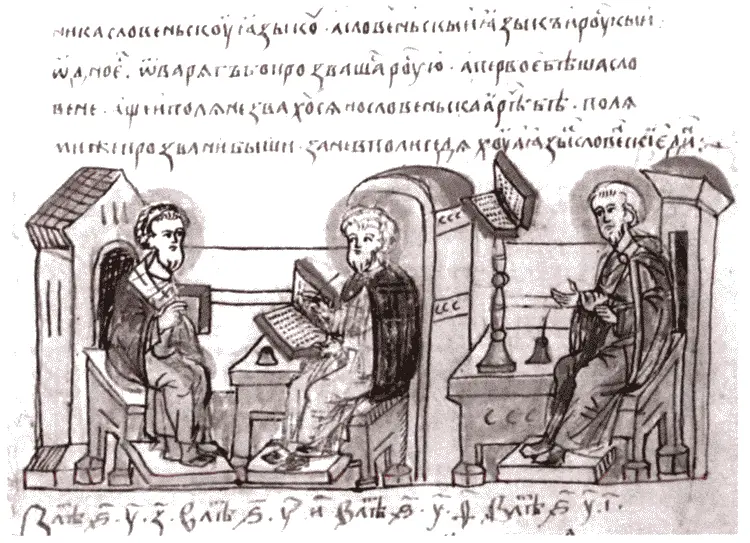 ника словеньскоу ꙗзыкоⷹ · а словеньскыи ꙗзыкъ и роускыи
ѡдно єⷭ҇ · ѿ варягъ бо прозвашаⷭ҇ роусю · а первоє бѣша сло
вене · аще и поляне звахосѧ но словеньскаꙗ рѣⷱ бѣ · поля
ми же прозвани быши · зане в поли седяхоу а ꙗзыⷦ словеⷩскїи єдиⷩ
В лѣⷮ ѕ҃ · у҃ · з҃ · В лѣⷮ ѕ҃ · у҃ · и҃ В лѣⷮ ѕ҃ · у҃ · ѳ҃ · В лѣⷮ ѕ҃ у҃ · і҃ ·